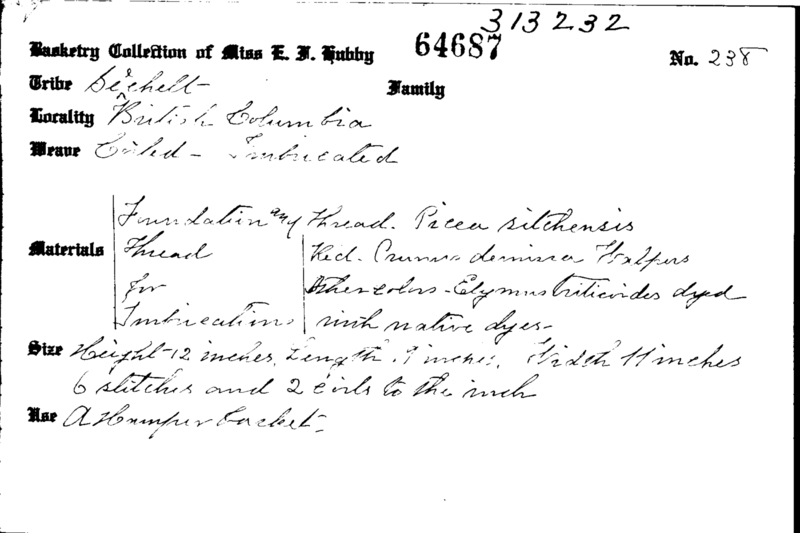 313232
Basketry Collection of Miss E. F. Hubby 64687 No. 238
Tribe Sechelt Family
Locality British Columbia
Weave Coiled - Imbricated
Foundation any thread. Picea sitchensis
Materials Thread Red. Prunus demissa Walpers
for Other colors - Elymus triticoides dyed
Imbrications with native dyes -
Size Height - 12 inches, Length inches. Width 11 inches
6 stitches and 2 coils to the inch
Use A Hamper basket -